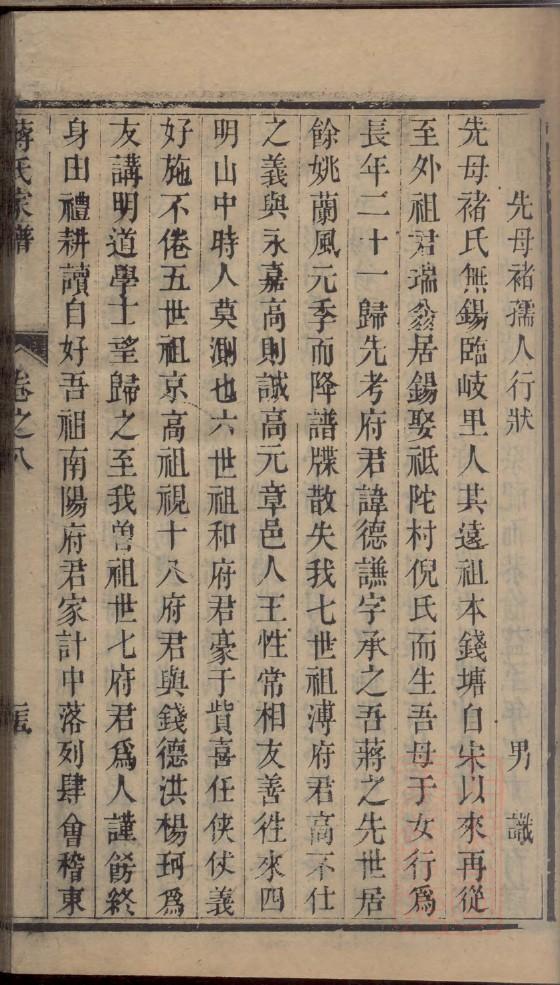 先母褚孺人行狀
男 識
先母褚氏無錫臨岐里人其遠祖本錢塘自宋以來再從
至外祖君瑞翁居錫娶祗陀村倪氏而生吾母于女行爲
長年二十一歸先考府君諱德讌字承之吾蔣之先世居
餘姚蘭風元季而降譜牒散失我七世祖溥府君高不仕
之義與永嘉高則誠高元章邑人王性常相友善徃來四
明山中時人莫測也六世祖和府君豪于貲喜任俠仗義
好施不倦五世祖京高祖視十八府君與錢德洪楊珂爲
友講明道學士望歸之至我曽祖世七府君爲人謹餝終
身由禮耕讀自好吾祖南陽府君家計中落列肆會稽東
蔣氏家譜
卷之八